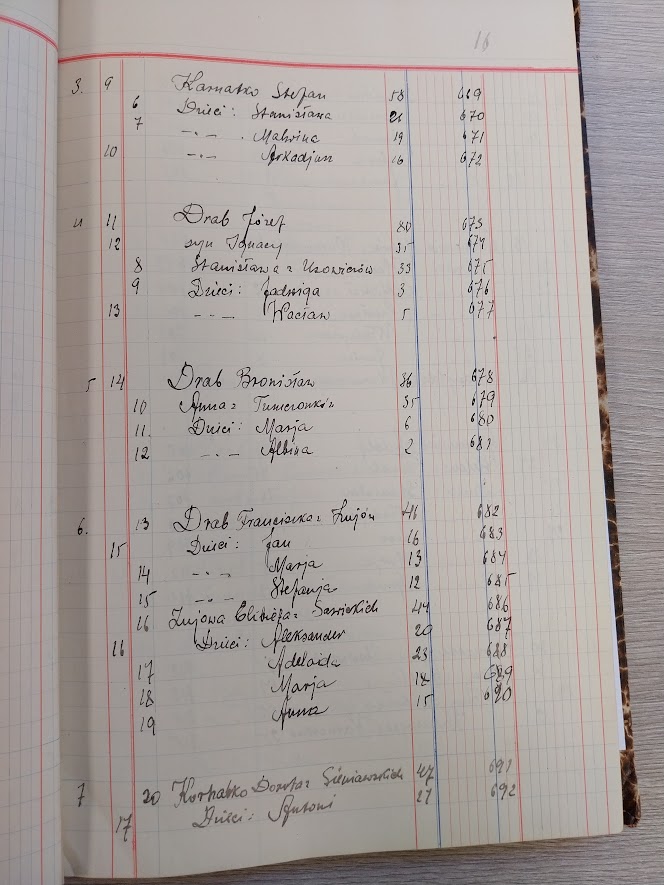 16
3. 9 Karnatko Stefan 58 669
6 Dzieci: Stanisława 26 670
7 -„- Malwina 19 671
10 -„- Arkadjusz 16 672
4 11 Drab Józef 80 673
12 syn Ignacy 35 674
8 Stanisława z 33 675
9 Dzieci: Jadwiga 3 676
13 -„- Wacław 5 677
5 14 Drab Bronisław 36 678
10 Anna z 35 679
11. Dzieci: Marja 6 680
12 -„- Albina 2 681
6. 13 Drab Franciszka z Zujów 46 682
15 Dzieci: Jan 16 683
14 -„- Marja 13 684
15 -„- Stefanja 12 685
16 Zujowa Elżbieta z Sawickich 44 686
16 Dzieci: Aleksander 20 687
17 Adelaida 23 688
18 Marja 18 689
19 Anna 15 690
7 20 Korhatko Dorota z Sieniawskich 47 691
17 Dzieci: Antoni 21 692